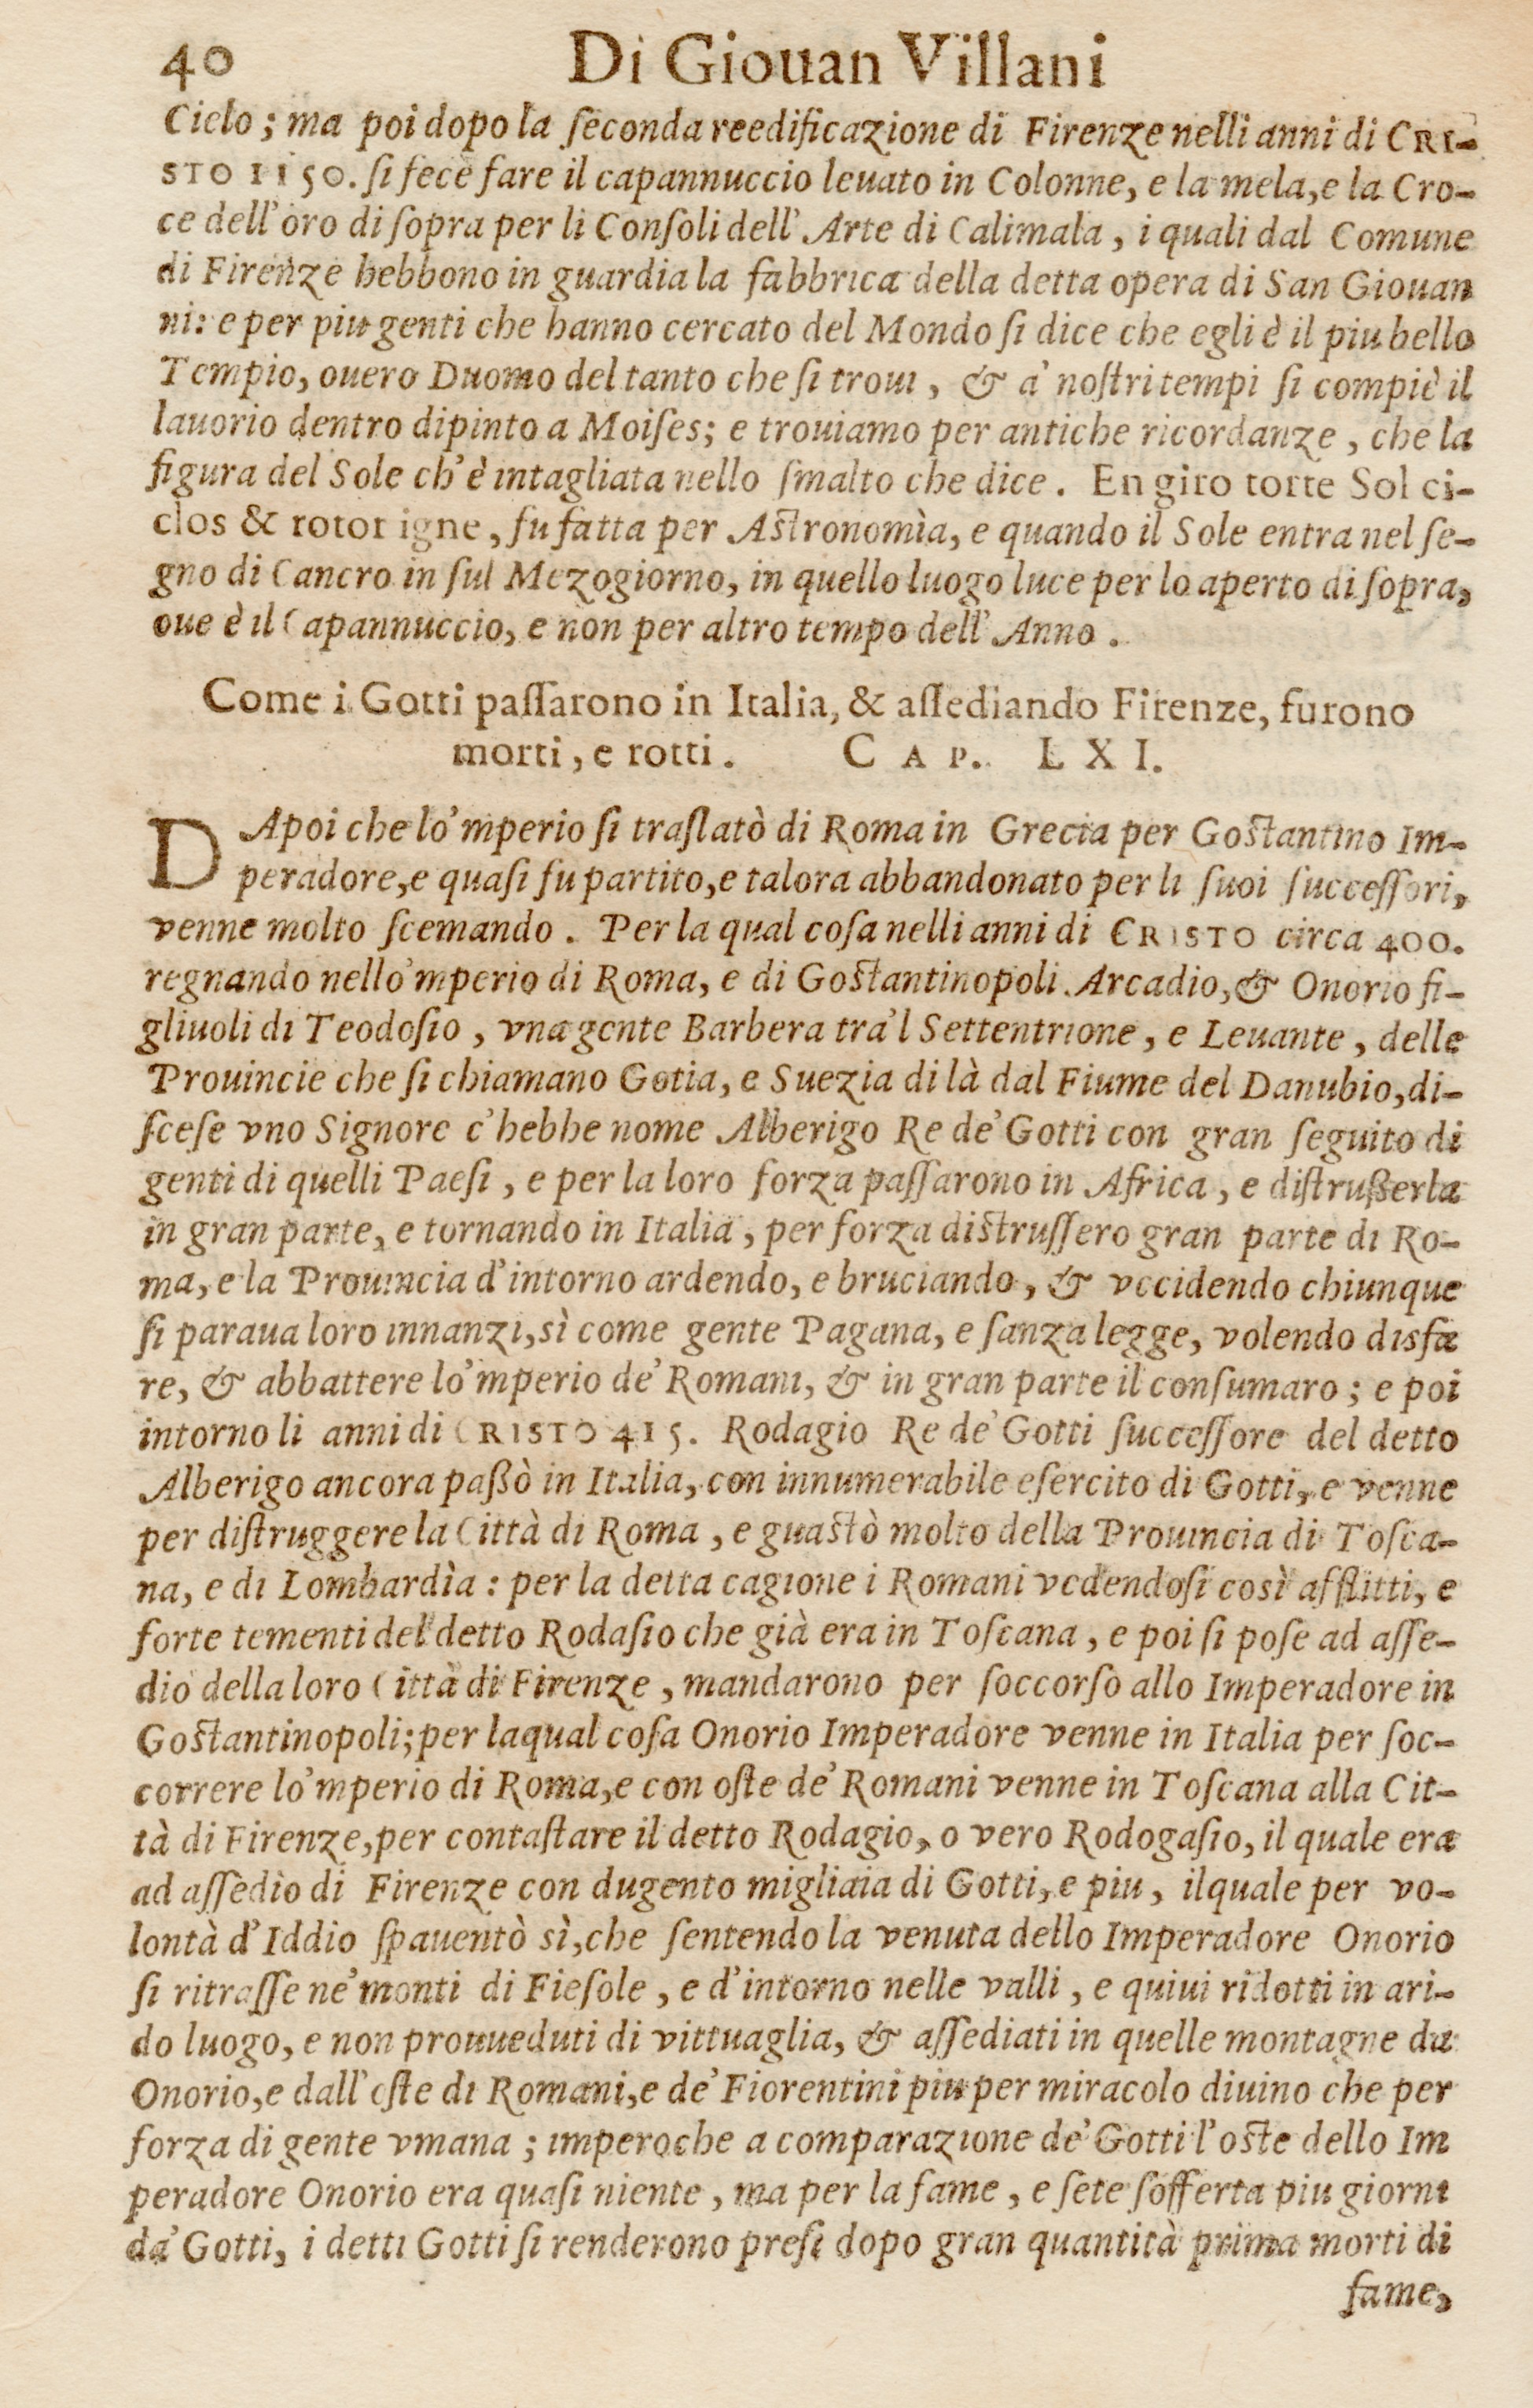 40 Di Giouan Villani
Cielo; ma poi dopo la ſeconda reedificazione di Firenze nelli anni di CRI-
STO 1150. ſi fece fare il capannuccio leuato in Colonne, e la mela, e la Cro-
ce dell'oro di ſopra per li Conſoli dell'Arte di Calimala, i quali dal Comune
di Firenze hebbono in guardia la fabbrica della detta opera di San Giouan
ni: e per piu genti che hanno cercato del Mondo ſi dice che egli è il piu bello
Tempio, ouero Duomo del tanto che ſi troui, & a' noſtri tempi ſi compiè il
lauorio dentro dipinto a Moiſes; e trouiamo per antiche ricordanze, che la
figura del Sole ch'è intagliata nello ſmalto che dice. En giro torte Sol ci-
clos & rotor igne, fu fatta per Aſtronomìa, e quando il Sole entra nel ſe-
gno di Cancro in ſul Mezogiorno, in quello luogo luce per lo aperto di ſopra,
oue è il Capannuccio, e non per altro tempo dell'Anno.
Come i Gotti paſſarono in Italia, & aſſediando Firenze, furono
morti, e rotti. CAP. LXI.
DApoi che lo'mperio ſi traſlatò di Roma in Grecia per Goſtantino Im-
peradore, e quaſi fu partito, e talora abbandonato per li ſuoi ſucceſſori,
venne molto ſcemando. Per la qual coſa nelli anni di CRISTO circa 400.
regnando nello'mperio di Roma, e di Goſtantinopoli Arcadio, & Onorio fi-
gliuoli di Teodoſio, vna gente Barbera tra'l Settentrione, e Leuante, delle
Prouincie che ſi chiamano Gotia, e Suezia di là dal Fiume del Danubio, di-
ſceſe vno Signore c'hebbe nome Alberigo Re de' Gotti con gran ſeguito di
genti di quelli Paeſi, e per la loro forza paſſarono in Africa, e diſtrußerla
in gran parte, e tornando in Italia, per forza diſtruſſero gran parte di Ro-
ma, e la Prouincia d'intorno ardendo, e bruciando, & vccidendo chiunque
ſi paraua loro innanzi, sì come gente Pagana, e ſanza legge, volendo disfa
re, & abbattere lo'mperio de' Romani, & in gran parte il conſumaro; e poi
intorno li anni di CRISTO 415. Rodagio Re de' Gotti ſucceſſore del detto
Alberigo ancora paßò in Italia, con innumerabile eſercito di Gotti, e venne
per diſtruggere la Città di Roma, e guaſtò molto della Prouincia di Toſca-
na, e di Lombardìa: per la detta cagione i Romani vedendoſi così afflitti, e
forte tementi del detto Rodaſio che già era in Toſcana, e poi ſi poſe ad aſſe-
dio della loro Città di Firenze, mandarono per ſoccorſo allo Imperadore in
Goſtantinopoli; per laqual coſa Onorio Imperadore venne in Italia per ſoc-
correre lo'mperio di Roma, e con oſte de' Romani venne in Toſcana alla Cit-
tà di Firenze, per contaſtare il detto Rodagio, o vero Rodogaſio, il quale era
ad aſſedio di Firenze con dugento migliaia di Gotti, e piu, ilquale per vo-
lontà d'Iddio ſpauentò sì, che ſentendo la venuta dello Imperadore Onorio
ſi ritraſſe ne' monti di Fieſole, e d'intorno nelle valli, e quiui ridotti in ari-
do luogo, e non proueduti di vittuaglia, & aſſediati in quelle montagne da
Onorio, e dall'oſte di Romani, e de' Fiorentini piu per miracolo diuino che per
forza di gente vmana; imperoche a comparazione de' Gotti l'oſte dello Im
peradore Onorio era quaſi niente, ma per la fame, e ſete ſofferta piu giorni
da' Gotti, i detti Gotti ſi renderono preſi dopo gran quantità prima morti di
fame,